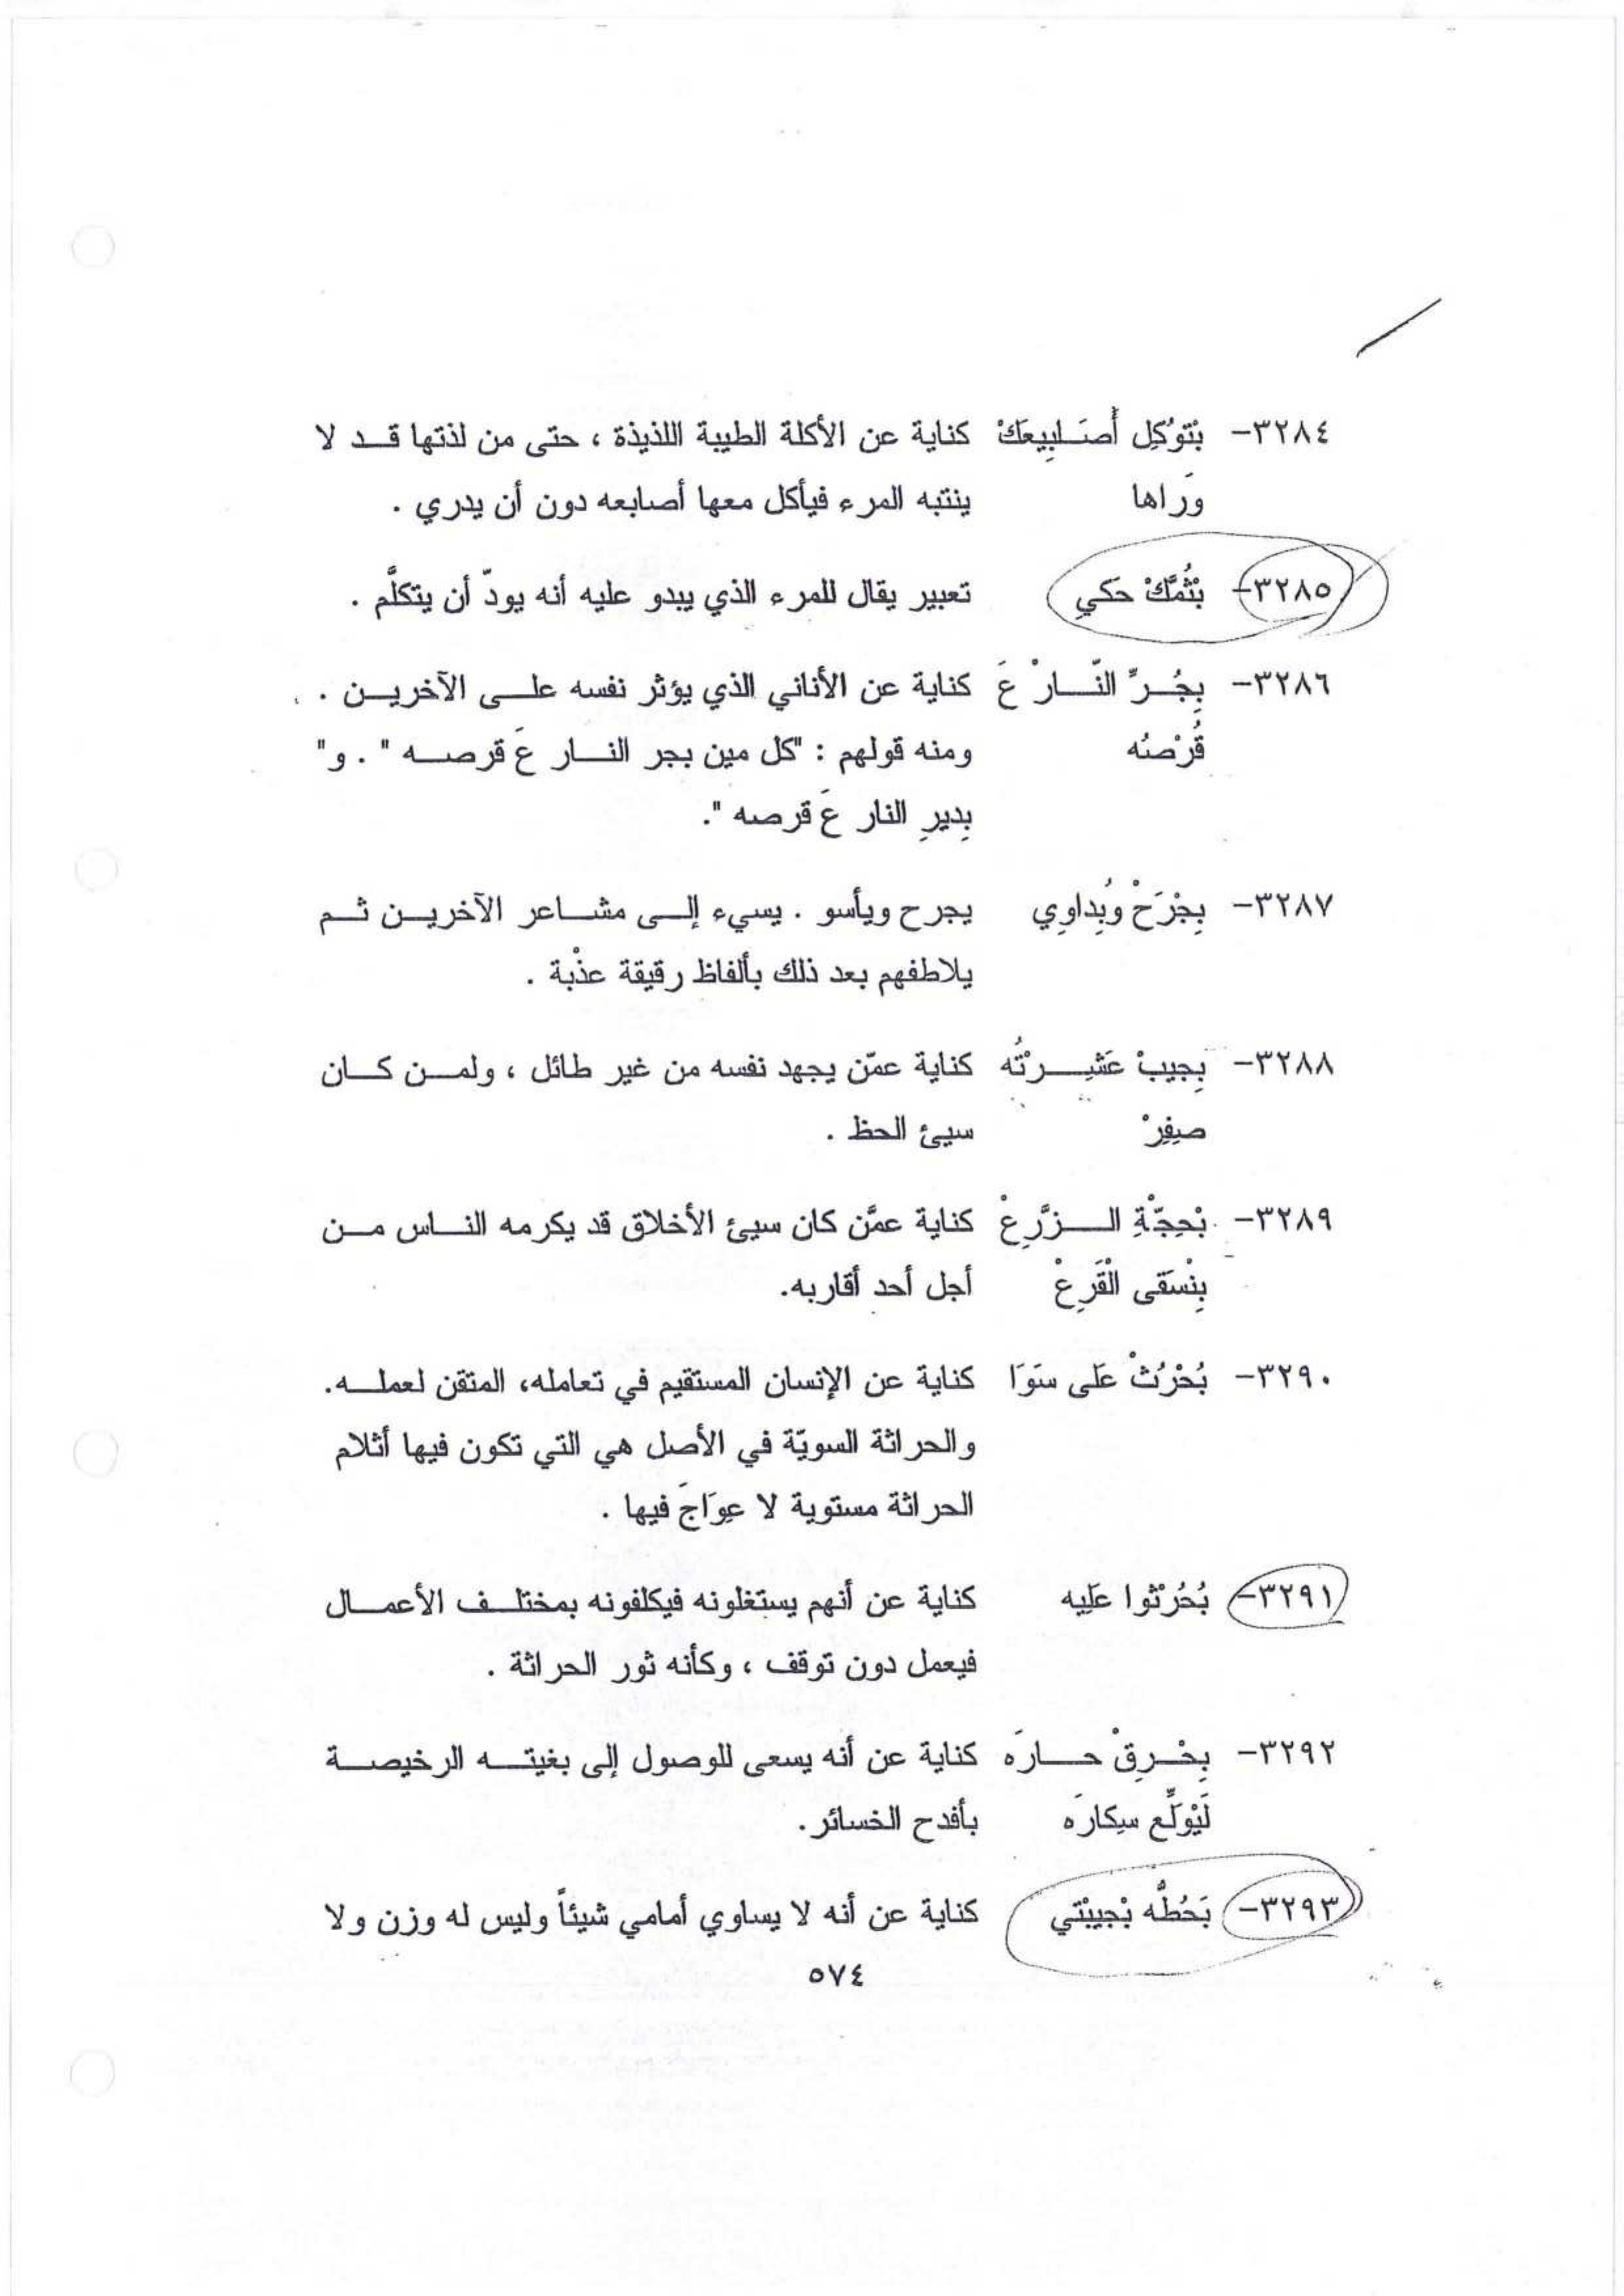 ٣٢٨٤- بْتوُكِل أَصَابِيعَكْ كناية عن الأكلة الطيبة اللذيذة ، حتى من لذتها قد لا
وَراها ينتبه المرء فيأكل معها أصابعه دون أن يدري .
٣٢٨٥- بْثُمَّكْ حَكيِ تعبير يقال للمرء الذي يبدو عليه أنه يودّ أن يتكلَّم .
٣٢٨٦- بِجُرِّ النّارْ عَ كناية عن الأناني الذي يؤثر نفسه على الآخرين .
قُرْصُه ومنه قولهم : "كل مين بجر النار عَ قرصه " . و"
بِديرِ النار عَ قرصه ".
٣٢٨٧- بِجْرَحْ وُبِداوِي يجرح ويأسو . يسيء إلى مشاعر الآخرين ثم
يلاطفهم بعد ذلك بألفاظ رقيقة عذْبة .
٣٢٨٨- بِجيبْ عَشِرْتُه كناية عمّن يجهد نفسه من غير طائل ، ولمن كان
صِفِرْ سيئ الحظ .
٣٢٨٩- بْحِجّةِ الزَّرِعْ كناية عمَّن كان سيئ الأخلاق قد يكرمه الناس من
بِنْسَقى الْقَرِعْ أجل أحد أقاربه.
٣٢٩٠- بُحْرُثْ عَلى سَوَا كناية عن الإنسان المستقيم في تعامله، المتقن لعمله.
والحراثة السويّة في الأصل هي التي تكون فيها أثلام
الحراثة مستوية لا عِوَاجَ فيها .
٣٢٩١- بُحُرْثوا عَلِيه كناية عن أنهم يستغلونه فيكلفونه بمختلف الأعمال
فيعمل دون توقف ، وكأنه ثور الحراثة .
٣٢٩٢- بِحْرِقْ حارَه كناية عن أنه يسعى للوصول إلى بغيته الرخيصة
لَيْوَلِّع سِكارَه بأفدح الخسائر.
٣٢٩٣- بَحُطُّه بْجيبْتي كناية عن أنه لا يساوي أمامي شيئاً وليس له وزن ولا
٥٧٤